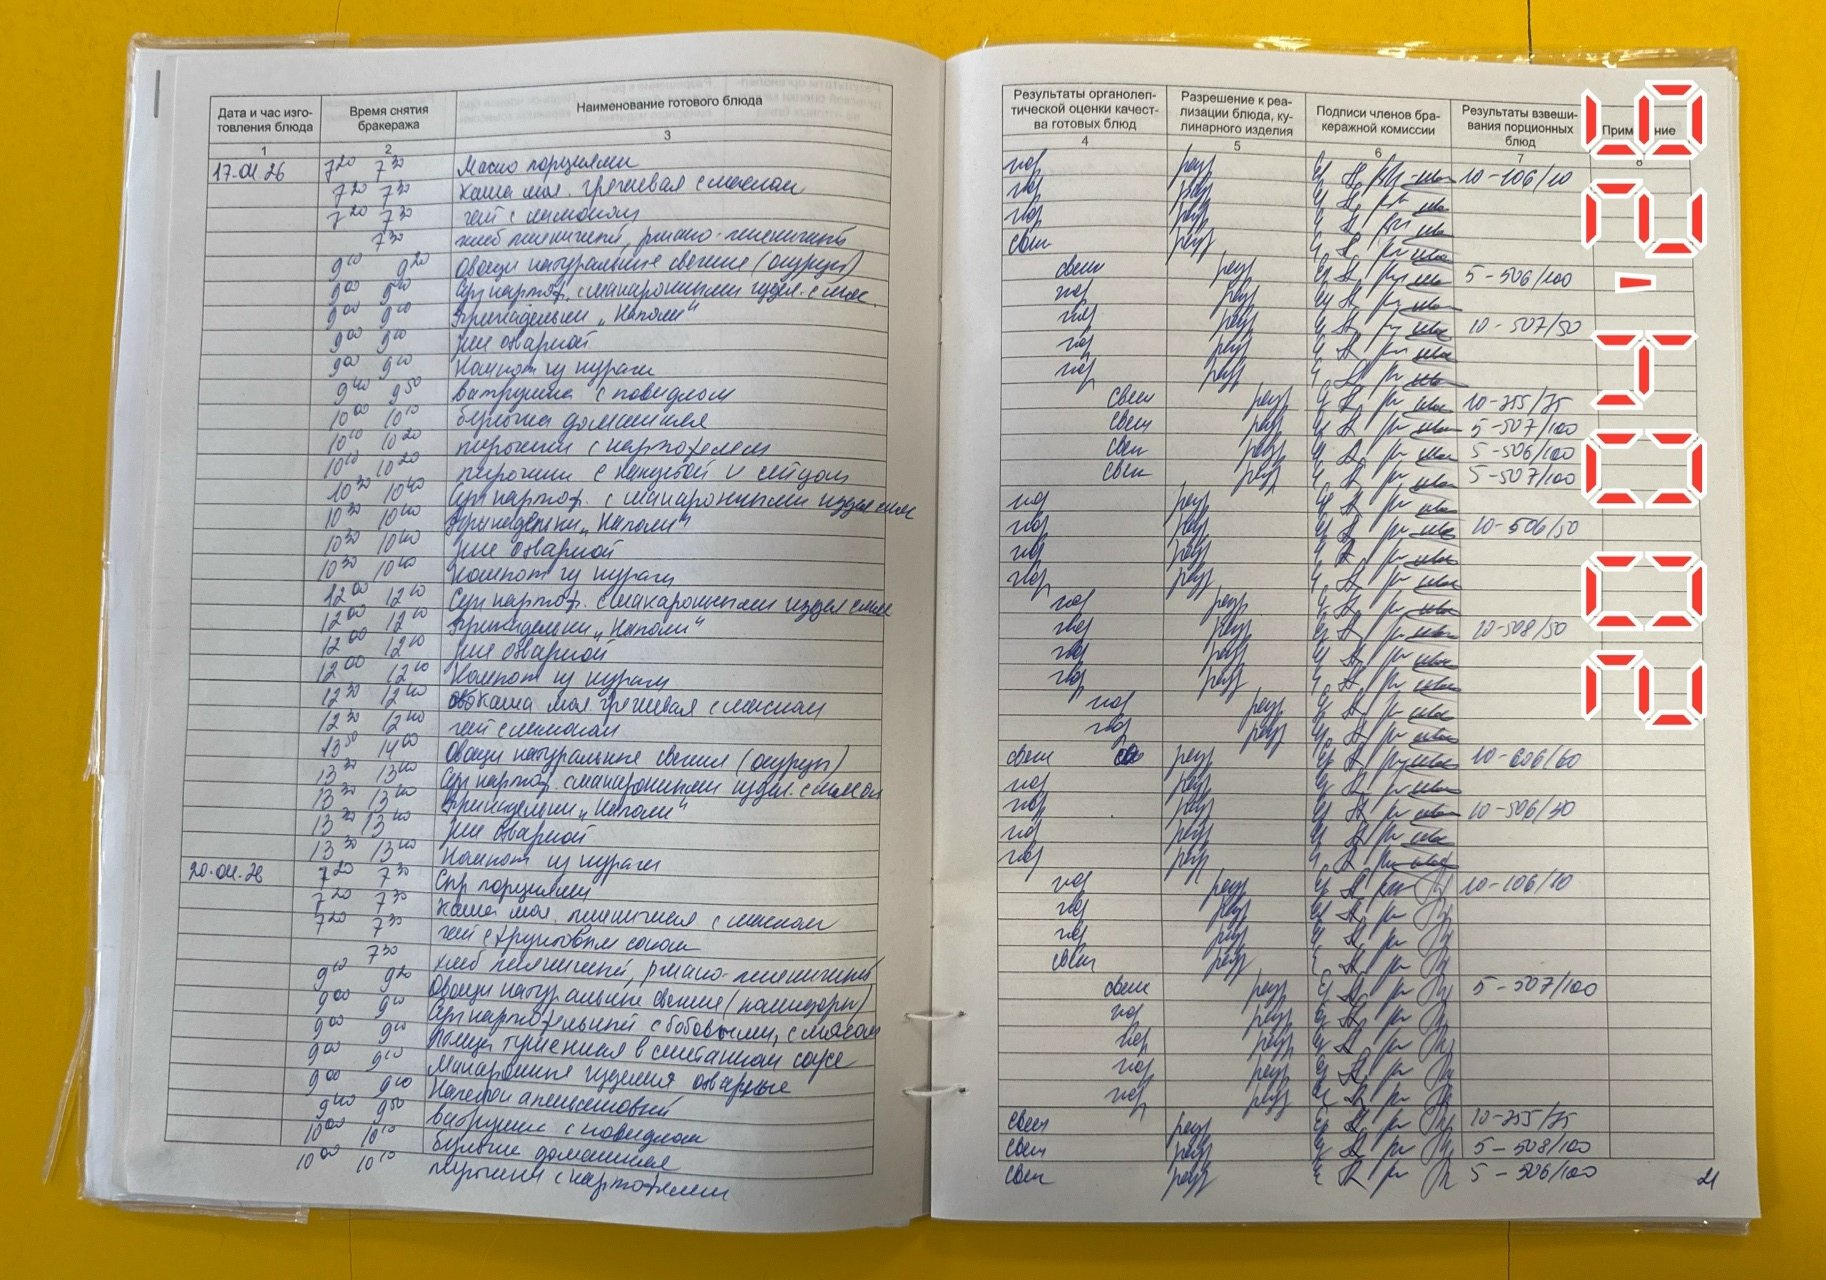 Дата и час изго-
товления блюда
Время снятия
бракеража
Наименование готового блюда
1 2 3
17.04.26 7²⁰ 7³⁰ Масло порциями
7²⁰ 7³⁰ Каша мол. гречневая с маслом
7²⁰ 7³⁰ Чай с лимоном
7³⁰ хлеб пшеничный, ржано-пшеничный
9¹⁰ 9²⁰ Овощи натуральные свежие (огурцы)
9⁰⁰ 9¹⁰ Суп картоф. с макаронными издел. с мяс.
9⁰⁰ 9¹⁰ Фрикадельки „Наполи"
9⁰⁰ 9¹⁰ Рис отварной
9⁰⁰ 9¹⁰ Компот из кураги
9⁴⁰ 9⁵⁰ ватрушка с повидлом
10⁰⁰ 10¹⁰ булочка домашняя
10¹⁰ 10²⁰ пирожки с картофелем
10¹⁰ 10²⁰ пирожки с капустой и яйцом
10³⁰ 10⁴⁰ Суп картоф. с макаронными издел с мяс
10³⁰ 10⁴⁰ Фрикадельки „Наполи"
10³⁰ 10⁴⁰ Рис отварной
10³⁰ 10⁴⁰ Компот из кураги
12⁰⁰ 12¹⁰ Суп картоф. с макаронными издел с мяс
12⁰⁰ 12¹⁰ Фрикадельки „Наполи"
12⁰⁰ 12¹⁰ Рис отварной
12⁰⁰ 12¹⁰ Компот из кураги
12³⁰ 12⁴⁰ каша мол. гречневая с маслом
12³⁰ 12⁴⁰ чай с лимоном
13⁵⁰ 14⁰⁰ Овощи натуральные свежие (огурцы)
13³⁰ 13⁴⁰ Суп картоф. с макаронными издел. с мясом
13³⁰ 13⁴⁰ Фрикадельки „Наполи"
13³⁰ 13⁴⁰ Рис отварной
13³⁰ 13⁴⁰ Компот из кураги
20.04.26 7²⁰ 7³⁰ Сыр порциями
7²⁰ 7³⁰ Каша мол. пшеничная с маслом
7²⁰ 7³⁰ Чай с фруктовым соком
7³⁰ хлеб пшеничный, ржано-пшеничный
9¹⁰ 9²⁰ Овощи натуральные свежие (помидоры)
9⁰⁰ 9¹⁰ Суп картофельный с бобовыми, с мясом
9⁰⁰ 9¹⁰ Птица тушенная в сметанном соусе
9⁰⁰ 9¹⁰ Макаронные изделия отварные
9⁰⁰ 9¹⁰ Напиток апельсиновый
9⁴⁰ 9⁵⁰ ватрушки с повидлом
10⁰⁰ 10¹⁰ булочка домашняя
10⁰⁰ 10¹⁰ пирожки с картофелем
Результаты органолеп-
тической оценки качест-
ва готовых блюд
Разрешение к реа-
лизации блюда, ку-
линарного изделия
Подписи членов бра-
керажной комиссии
Результаты взвеши-
вания порционных
блюд
4 5 6 7 8
гор разр 10-106/10
гор разр
гор разр
свеж разр
свеж разр 5-506/100
гор разр
гор разр 10-507/50
гор разр
гор разр
свеж разр 10-755/75
свеж разр 5-507/100
свеж разр 5-506/100
свеж разр 5-507/100
гор разр
гор разр 10-506/50
гор разр
гор разр
гор разр
гор разр 10-508/50
гор разр
гор разр
гор разр
гор разр
свеж разр 10-606/60
гор разр
гор разр 10-506/50
гор разр
гор разр
гор разр 10-106/10
гор разр
гор разр
свеж разр
свеж разр 5-507/100
гор разр
гор разр
гор разр
гор разр
свеж разр 10-755/75
свеж разр 5-508/100
свеж разр 5-506/100
21
20 04 '26